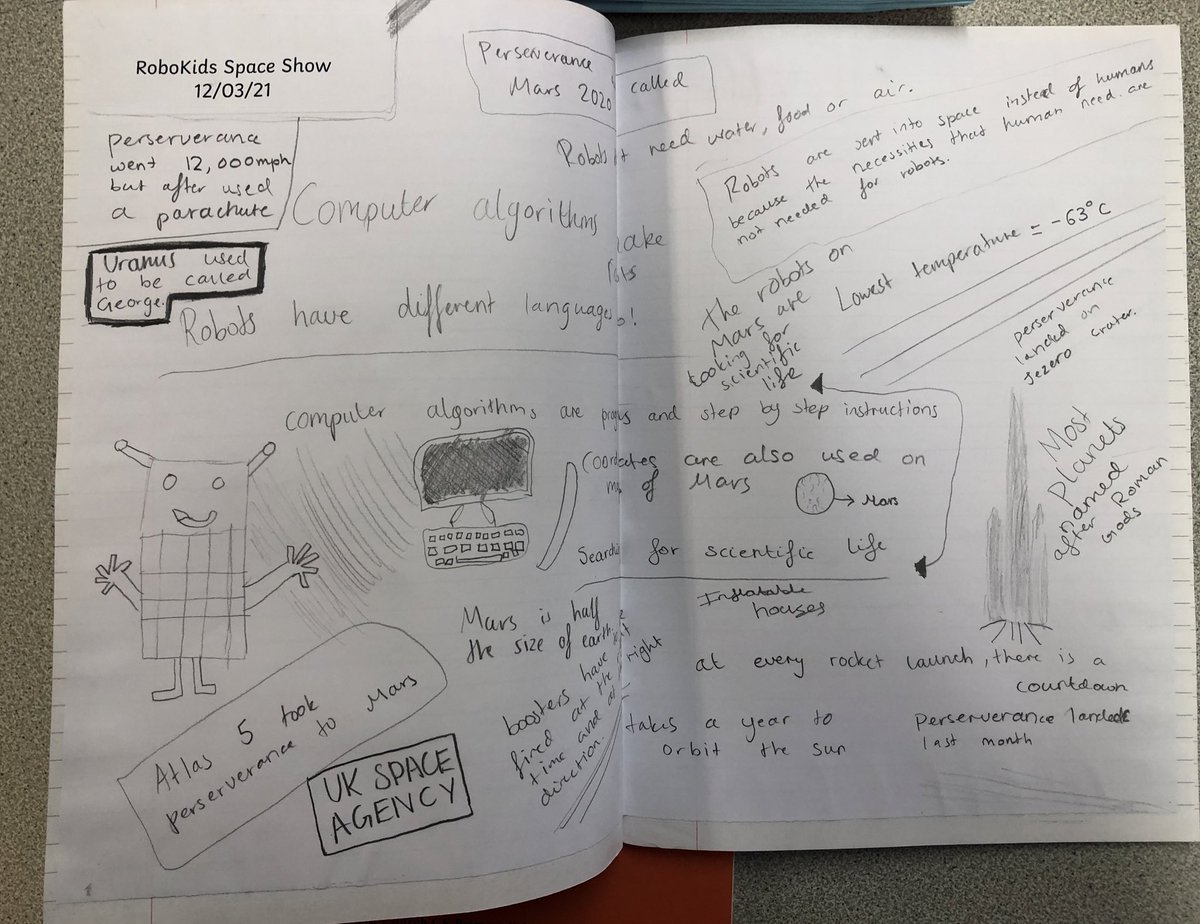 RoboKids Space Show
12/03/21
Perserverance
called
Mars 2020
perserverance
went 12,000mph
but after used
a parachute
Uranus used
to be called
George.
Robots
need water, food or air.
Computer algorithms
Robots have different languages!
Robots are sent into space instead of humans
because the necessities that human need are
not needed for robots.
The robots on
Mars are
looking for
scientific
life
Lowest temperature = -63°C
perserverance
landed on
Jezero crater.
computer algorithms are
and step by step instructions
are also used on
of Mars
Mars
for scientific life
Most
Planets
named
after Roman
Gods
Inflatable
houses
Mars is half
the size of earth.
boosters have
right
fired at the
time and at
direction.
at every rocket launch, there is a
countdown
takes a year to
orbit the sun
perserverance landed
last month
Atlas 5 took
perserverance to Mars
UK SPACE
AGENCY